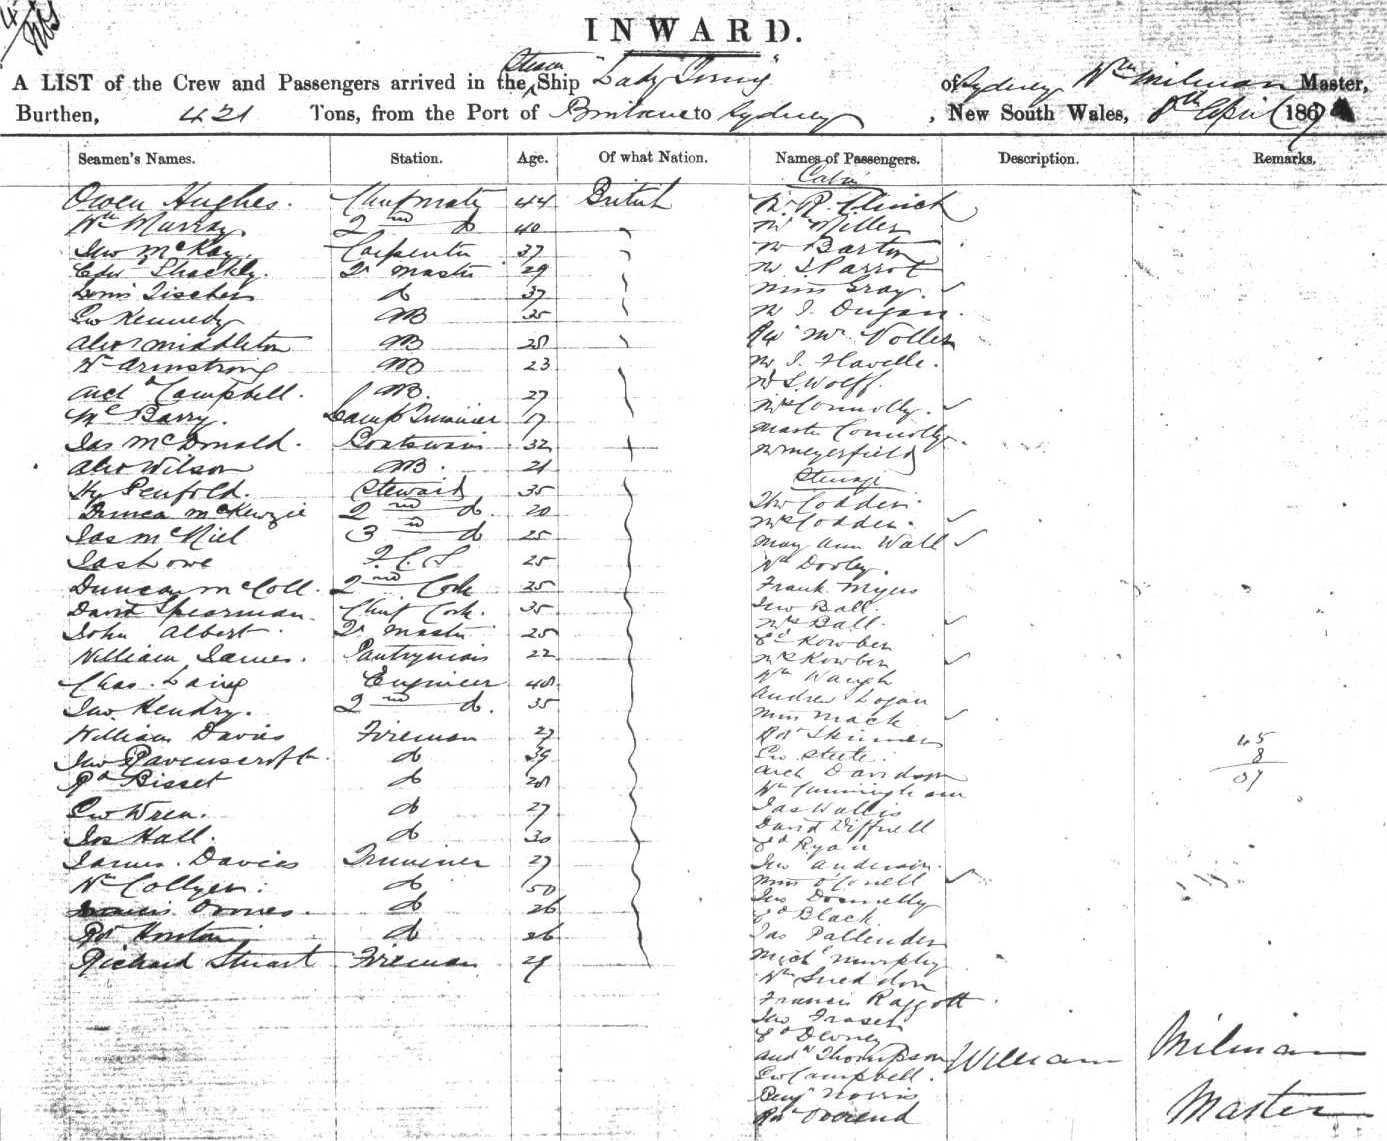 INWARD.
A LIST of the Crew and Passengers arrived in the Steam Ship "Lady Young" of Sydney, Wm Milman Master,
Burthen, 421 Tons, from the Port of Brisbane to Sydney, New South Wales, 8th April 187
Seamen's Names. Station. Age. Of what Nation. Names of Passengers. Description. Remarks.
Cabin
Owen Hughes. Chief mate 44 British Mr R. Clinch
Wm Murray. 2nd do 40 Mr Miller
Jno McKay. Carpenter 37 Mr Barton
Edwd Shackly. Qr master 29 Mr J Parrot
Louis Tischen do 37 Miss Gray.
Geo Kennedy AB 35 Mr J. Dugan.
Alexr Middleton AB 28 Revd Mr Voller
Wm Armstrong AB 23 Mr J. Flavelle.
Archd Campbell. AB. 27 Mr S. Wolff.
Barry. Lamp Trimmer 17 Mrs Connolly.
Master Connolly.
Jas McDonald. Boatswain 32 Mr Meyerfield
Alex Wilson AB. 21 Steerage
Hy Penfold. Steward 35 Thos Codden.
Duncan McKenzie 2nd do. 20 Mrs Codden.
Jas McNiel 3rd do 25 Mary Ann Wall
Jas Lowe F.C.S 25 Wm Dooley.
Duncan McColl. 2nd Cook 25 Frank Myers
David Spearman. Chief Cook. 35 Jno Ball.
John Albert. Qr master 25 Mrs Ball.
William James. Pantryman 22 Ed Kowben
Mrs Kowben
Chas. Laing Engineer 48 Wm Waugh
Jno. Hendry. 2nd do. 35 Andrew Logan
Miss Mack
William Davies Fireman 27 Robt Skinner
Jno Ravenscroft do 39 Geo Steele.
Rd Bisset do 28 Arch Davidson
Wm Cunningham
Geo Wren. do 27 Jas Wallis
Jos Hall. do 30 David Diffnell
Ed Ryan
James Davies Trimmer 27 Jno Anderson.
Wm Collyer. do 50 Miss O'Conell
do 26 Jas Donnelly
Ed Black
Robt do 26 Jas Pallender
Richard Stuart Fireman 29 Michl Murphy
Wm Sneddon
Francis Raggott
Jno Fraser
Ed
Andw Thompson
Geo Campbell.
Benj Norris
Robt
45
8
William Milman
Master